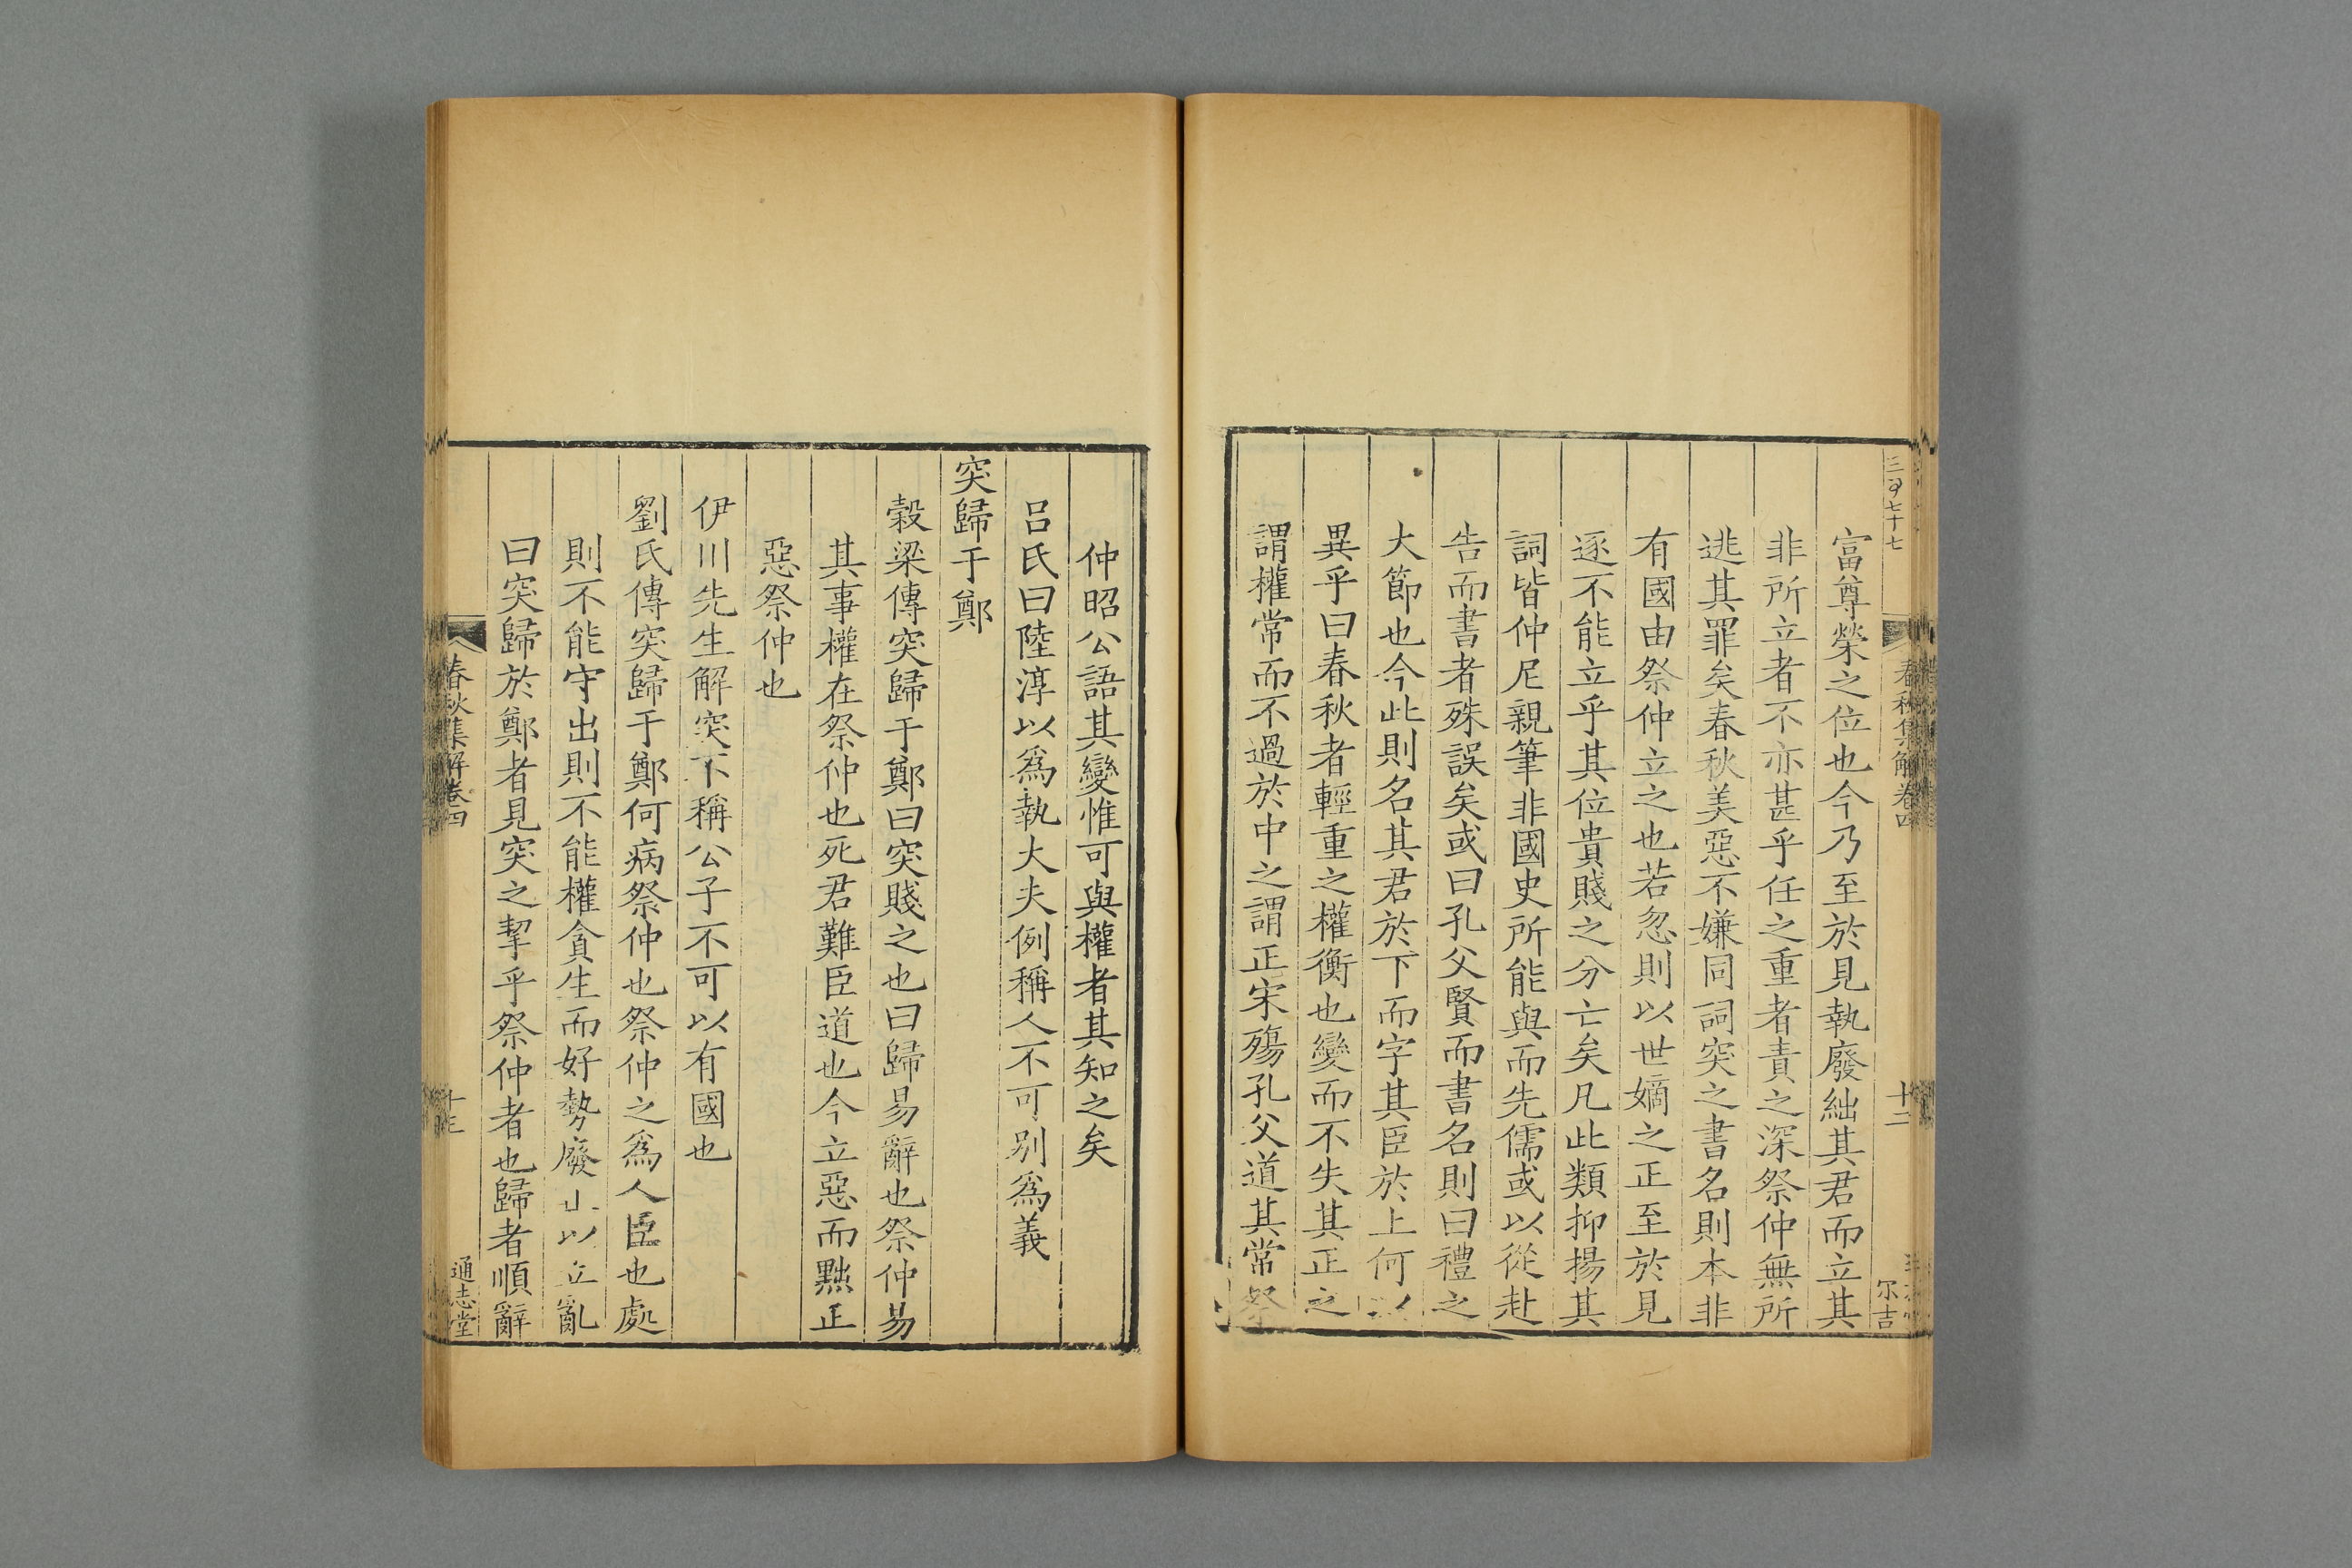 富尊榮之位也今乃至於見執廢絀其君而立其
非所立者不亦甚乎任之重者責之深祭仲無所
逃其罪矣春秋美惡不嫌同詞突之書名則本非
有國由祭仲立之也若忽則以世嫡之正至於見
逐不能立乎其位貴賤之分亡矣凡此類抑揚其
詞皆仲尼親筆非國史所能與而先儒或以從赴
告而書者殊誤矣或曰孔父賢而書名則曰禮之
大節也今此則名其君於下而字其臣於上何以
異乎曰春秋者輕重之權衡也變而不失其正之
謂權常而不過於中之謂正宋殤孔父道其常祭
春秋集解卷四
十二
尔吉
仲昭公語其變惟可與權者其知之矣
呂氏曰陸淳以爲執大夫例稱人不可别爲義
突歸于鄭
穀梁傳突歸于鄭曰突賤之也曰歸易辭也祭仲易
其事權在祭仲也死君難臣道也今立惡而黜正
惡祭仲也
伊川先生解突不稱公子不可以有國也
劉氏傳突歸于鄭何病祭仲也祭仲之爲人臣也處
則不能守出則不能權貪生而好勢廢以立亂
曰突歸於鄭者見突之挈乎祭仲者也歸者順辭
春秋集解卷四
通志堂